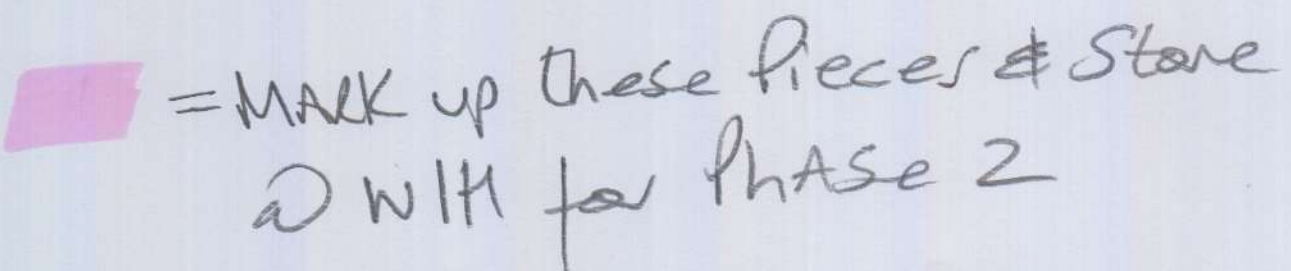 = MARK up these Pieces & Store
@ W/H for PhASe 2